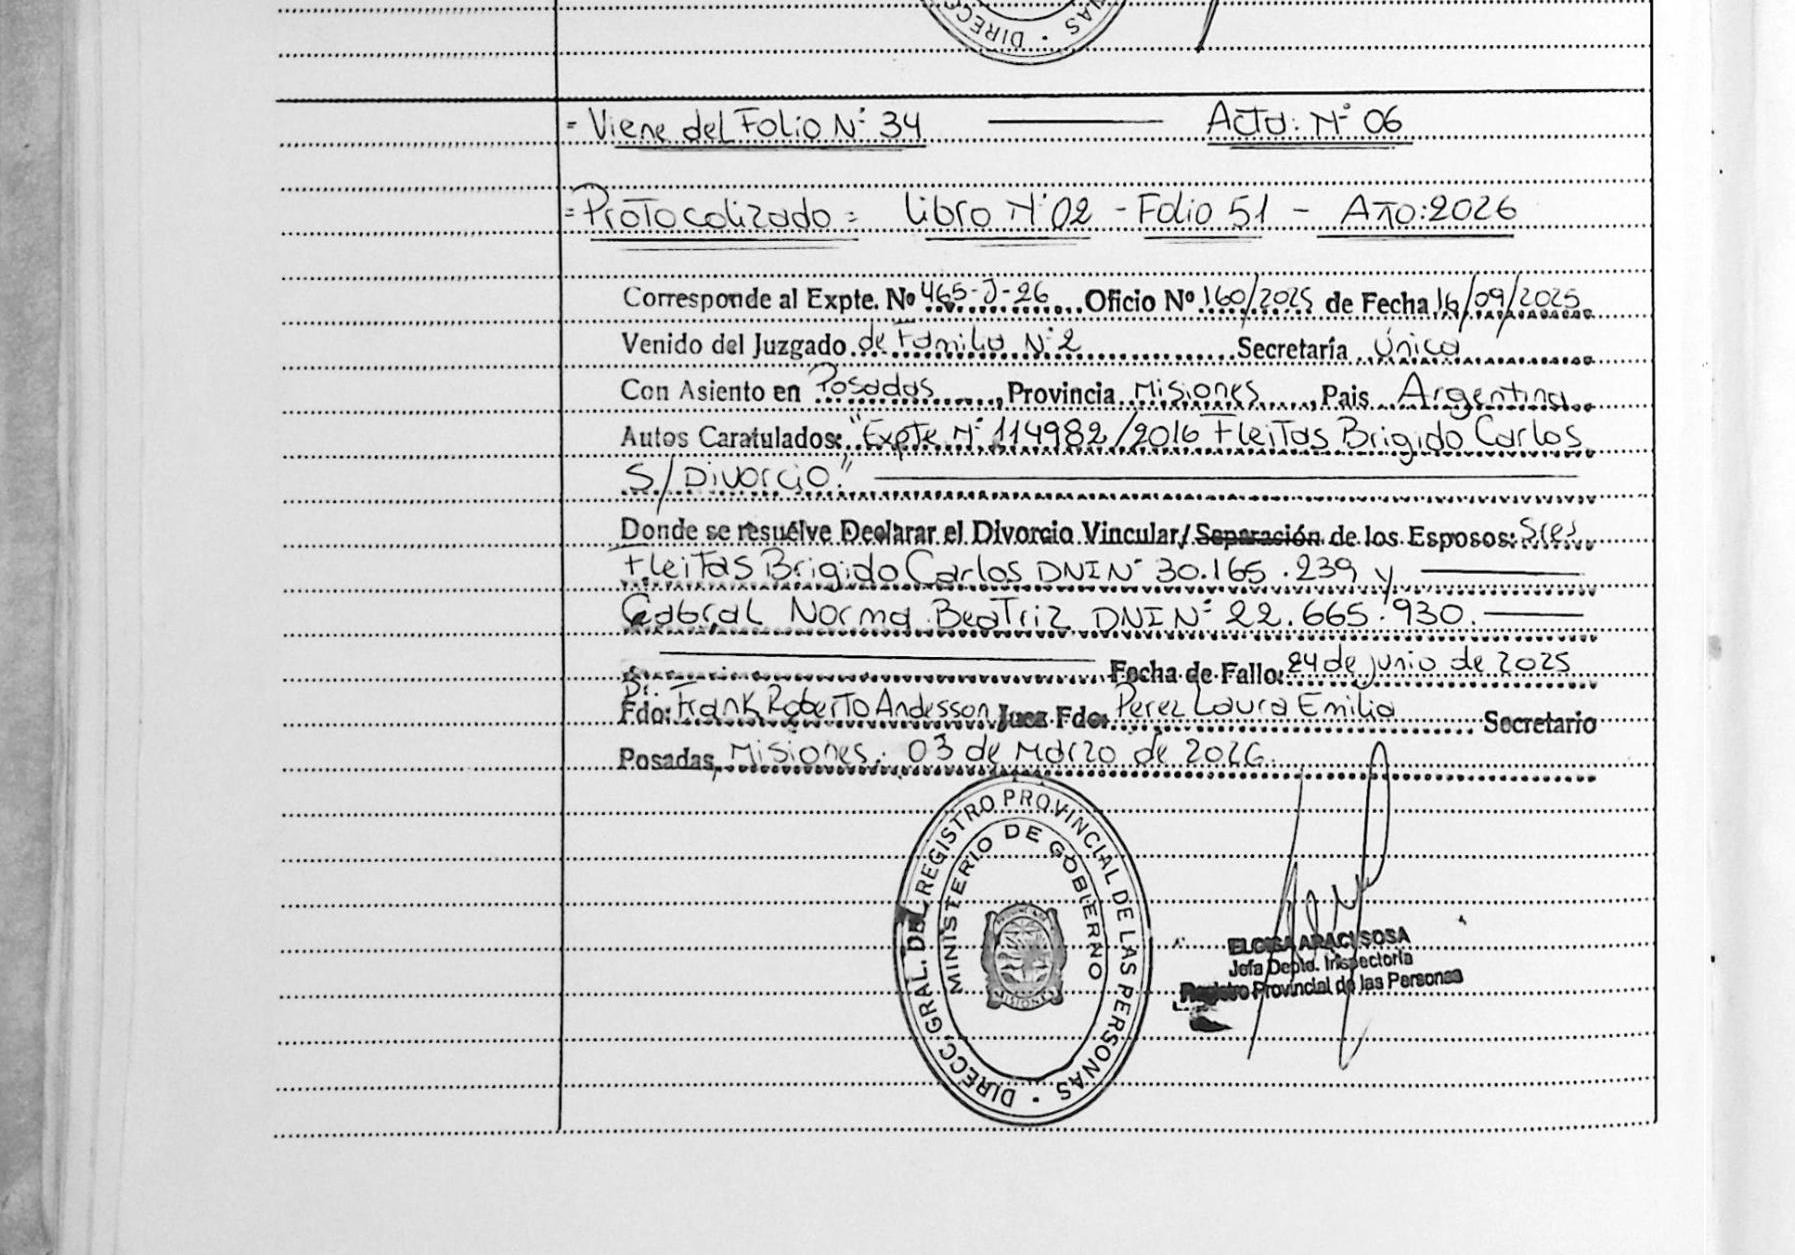 DIRECC NAS
= Viene del Folio N° 34 ——— Acta: N° 06
= Protocolizado = Libro N° 02 - Folio 51 - Año: 2026
Corresponde al Expte. Nº 465-J-26 Oficio Nº 160/2025 de Fecha 16/09/2025
Venido del Juzgado de Familia N° 2 Secretaría Única
Con Asiento en Posadas, Provincia Misiones, Pais Argentina
Autos Caratulados: "Expte N° 114982/2016 Fleitas Brigido Carlos
S/Divorcio."
Donde se resuélve Declarar el Divorcio Vincular/Separación de los Esposos: Sres
Fleitas Brigido Carlos DNI N° 30.165.239 y
Cabral Norma Beatriz DNI N° 22.665.930.
Fecha de Fallo: 24 de junio de 2025
Fdo: Dr. Frank Roberto Andesson Juez Fdo: Perez Laura Emilia Secretario
Posadas, Misiones. 03 de Marzo de 2026.
DIRECC. GRAL. DEL REGISTRO PROVINCIAL DE LAS PERSONAS
MINISTERIO DE GOBIERNO
MISIONES
ELOISA ARACI SOSA
Jefa Depto. Inspectoría
Registro Provincial de las Personas